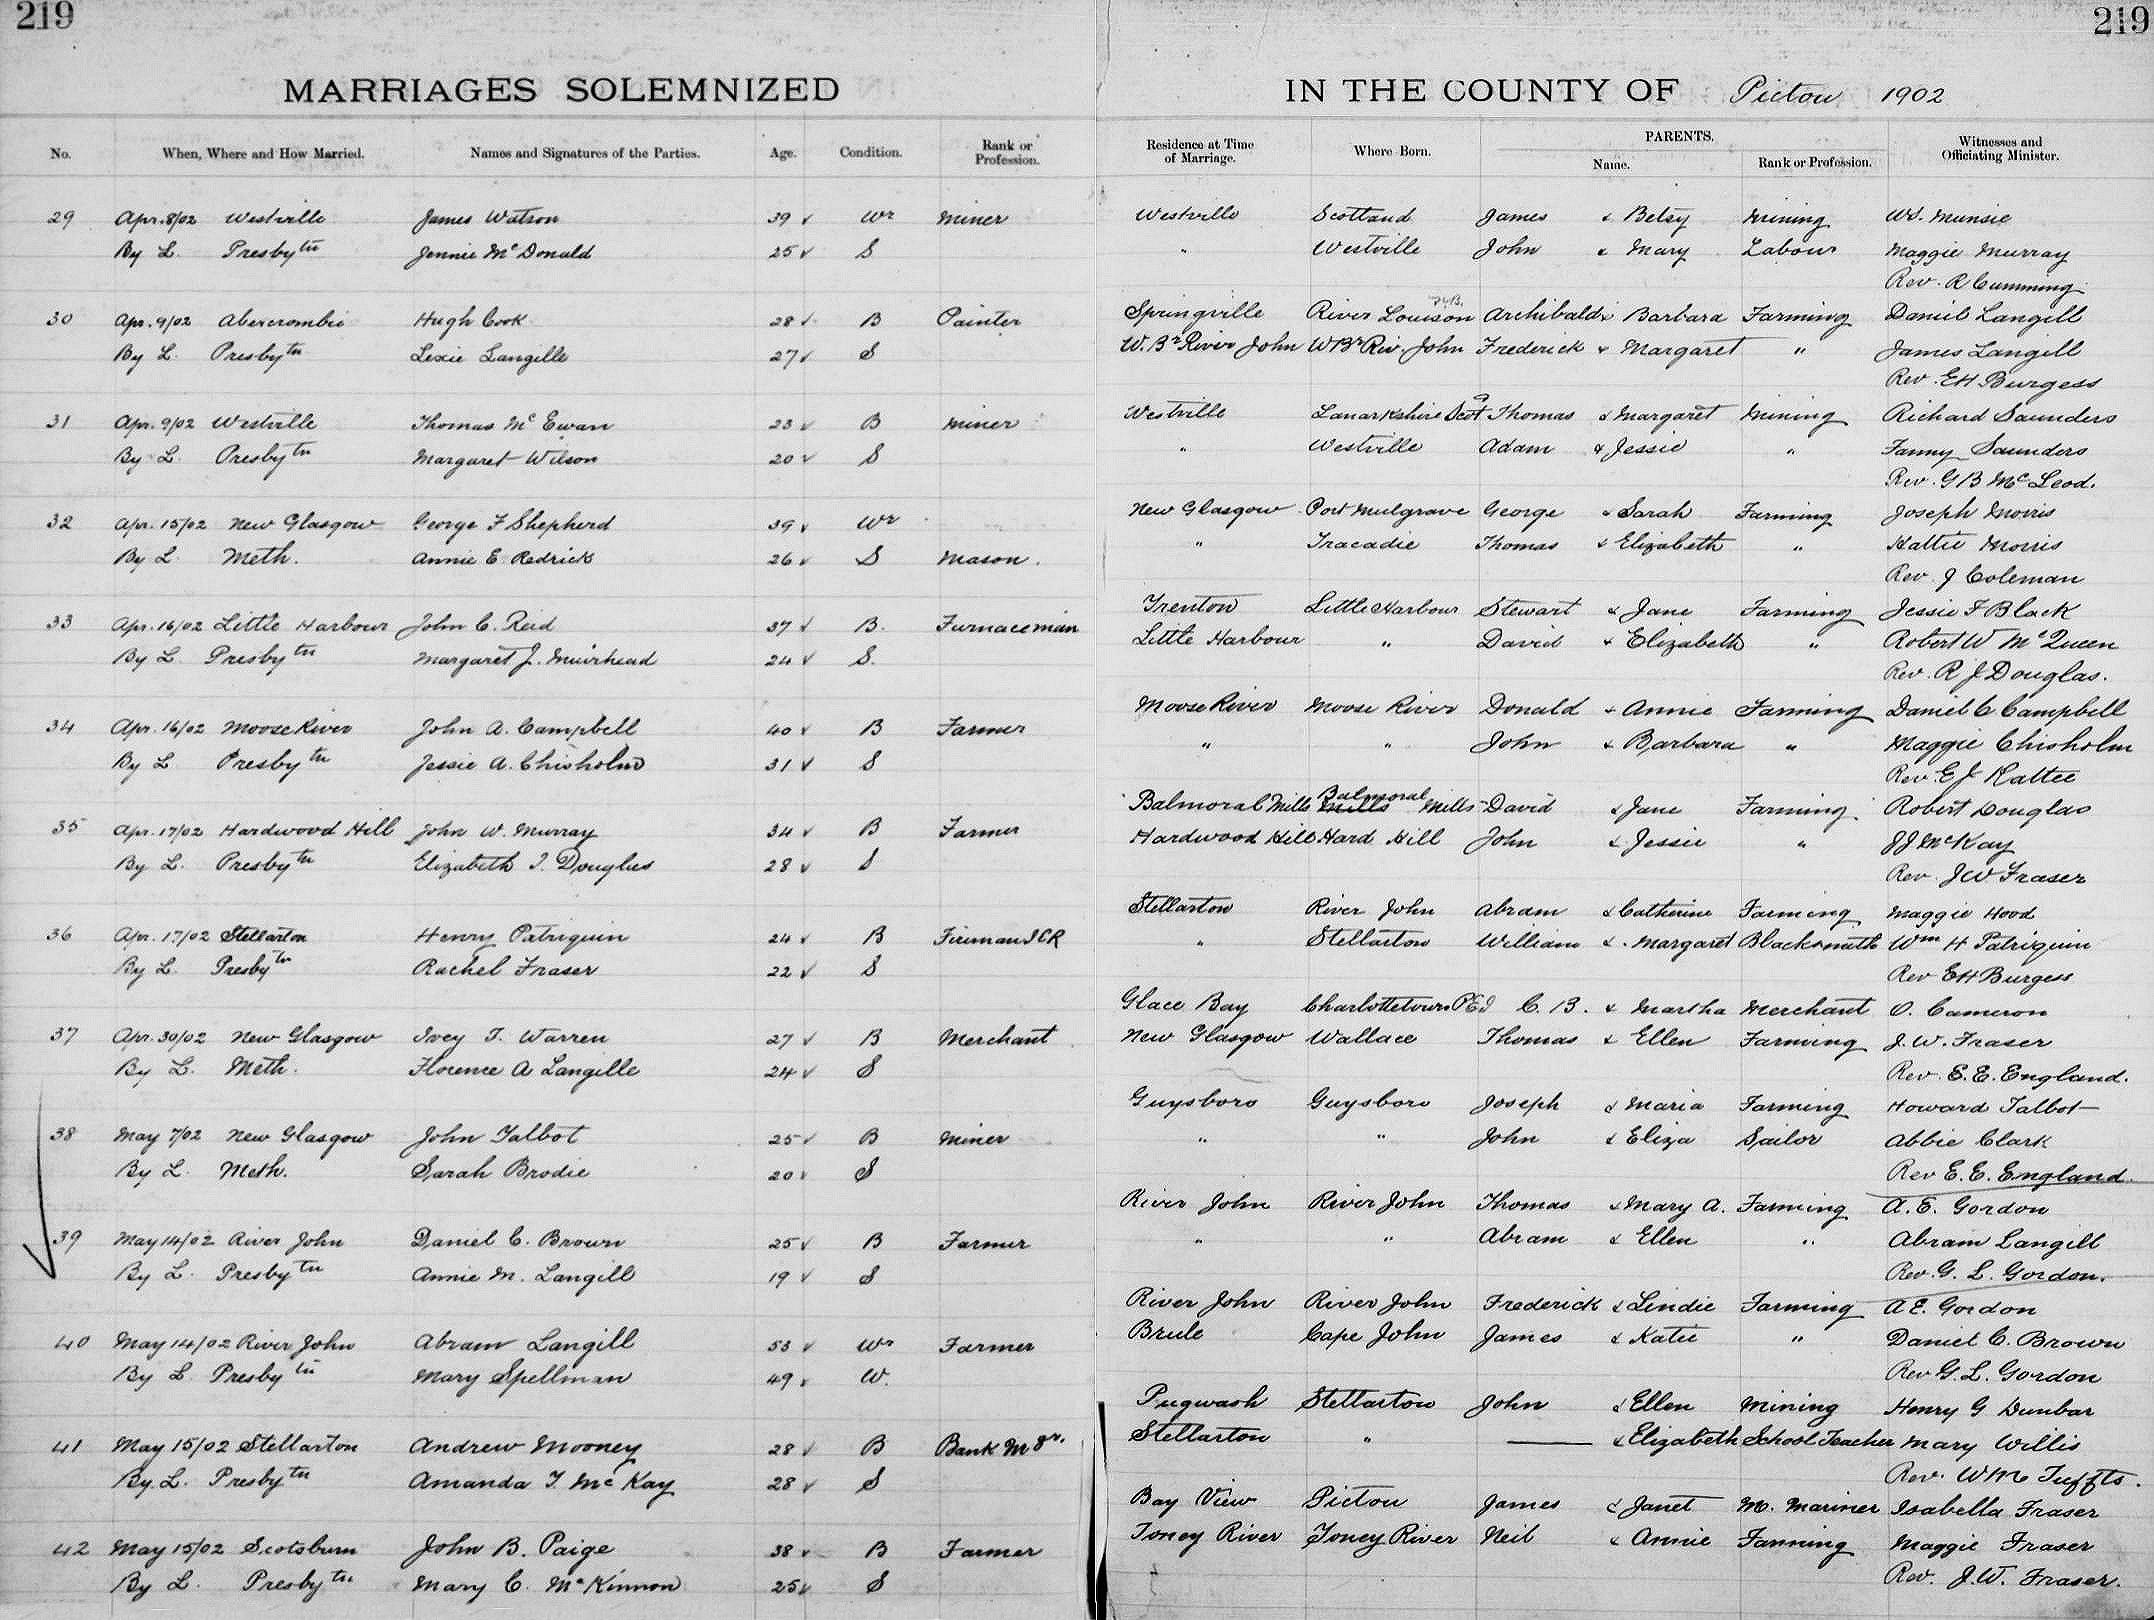 219
219
MARRIAGES SOLEMNIZED IN THE COUNTY OF Pictou 1902
No. When, Where and How Married. Names and Signatures of the Parties. Age. Condition. Rank or Profession. Residence at Time of Marriage. Where Born. PARENTS. Name. Rank or Profession. Witnesses and Officiating Minister.
29 Apr. 8/02 Westville James Watson 39 ✓ Wr Miner Westville Scotland James & Betsy Mining Wd. Munsie
By L. Presbytn Jennie McDonald 25 ✓ S " Westville John & Mary Labour Maggie Murray
Rev. R Cumming
30 Apr. 9/02 Abercrombie Hugh Cook 28 ✓ B Painter Springville River Louison N.B. Archibald & Barbara Farming Daniel Langill
By L. Presbytn Lexie Langille 27 ✓ S W. Br River John W Br Riv. John Frederick & Margaret " James Langill
Rev. EH Burgess
31 Apr. 9/02 Westville Thomas McEwan 23 ✓ B Miner Westville Lanarkshire Scot Thomas & Margaret Mining Richard Saunders
By L. Presbytn Margaret Wilson 20 ✓ S " Westville Adam & Jessie " Fanny Saunders
Rev. G B McLeod.
32 Apr. 15/02 New Glasgow George F Shepherd 39 ✓ Wr New Glasgow Port Mulgrave George & Sarah Farming Joseph Morris
By L Meth. Annie E. Redrick 26 ✓ S Mason. " Tracadie Thomas & Elizabeth " Hattie Morris
Rev. J Coleman
33 Apr. 16/02 Little Harbour John C. Reid 37 ✓ B. Furnaceman Trenton Little Harbour Stewart & Jane Farming Jessie F Black
By L Presbytn Margaret J. Muirhead 24 ✓ S. Little Harbour " David & Elizabeth " Robert W McQueen
Rev. R J Douglas.
34 Apr. 16/02 Moose River John A. Campbell 40 ✓ B Farmer Moose River Moose River Donald & Annie Farming Daniel C Campbell
By L Presbytn Jessie A. Chisholm 31 ✓ S " " John & Barbara " Maggie Chisholm
Rev. E J Rattee
35 Apr. 17/02 Hardwood Hill John W. Murray 34 ✓ B Farmer Balmoral Mills Balmoral Mills Mills David & Jane Farming Robert Douglas
By L. Presbytn Elizabeth I. Douglas 28 ✓ S Hardwood Hill Hard Hill John & Jessie " JJ McKay
Rev. J W Fraser
36 Apr. 17/02 Stellarton Henry Patriquin 24 ✓ B Fireman ICR Stellarton River John Abram & Catherine Farming Maggie Hood
By L. Presbytn Rachel Fraser 22 ✓ S " Stellarton William & Margaret Blacksmith Wm H Patriquin
Rev EH Burgess
37 Apr. 30/02 New Glasgow Ivey T. Warren 27 ✓ B Merchant Glace Bay Charlottetown PEI C. B. & Martha Merchant O. Cameron
By L. Meth. Florence A Langille 24 ✓ S New Glasgow Wallace Thomas & Ellen Farming J. W. Fraser
Rev. E. E. England.
38 May 7/02 New Glasgow John Talbot 25 ✓ B Miner Guysboro Guysboro Joseph & Maria Farming Howard Talbot
By L. Meth. Sarah Brodie 20 ✓ S " " John & Eliza Sailor Abbie Clark
Rev E. E. England.
39 May 14/02 River John Daniel C. Brown 25 ✓ B Farmer River John River John Thomas & Mary A. Farming A. E. Gordon
By L. Presbytn Annie M. Langill 19 ✓ S " " Abram & Ellen " Abram Langill
Rev. G. L. Gordon.
40 May 14/02 River John Abram Langill 53 ✓ Wr Farmer River John River John Frederick & Lindie Farming A E. Gordon
By L Presbytn Mary Spellman 49 ✓ W. Brule Cape John James & Katie " Daniel C. Brown
Rev G. L. Gordon
41 May 15/02 Stellarton Andrew Mooney 28 ✓ B Bank Mgr. Pugwash Stellarton John & Ellen Mining Henry G Dunbar
By L. Presbytn Amanda T. McKay 28 ✓ S Stellarton " —— & Elizabeth School Teacher Mary Willis
Rev. W M Tuffts.
42 May 15/02 Scotsburn John B. Paige 38 ✓ B Farmer Bay View Pictou James & Janet M. Mariner Isabella Fraser
By L. Presbytn Mary C. McKinnon 25 ✓ S Toney River Toney River Neil & Annie Farming Maggie Fraser
Rev. J. W. Fraser.